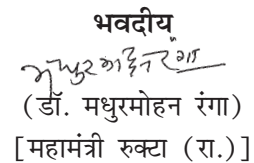 भवदीय
मधुरमोहन रंगा
(डॉ. मधुरमोहन रंगा)
[महामंत्री रुक्टा (रा.)]